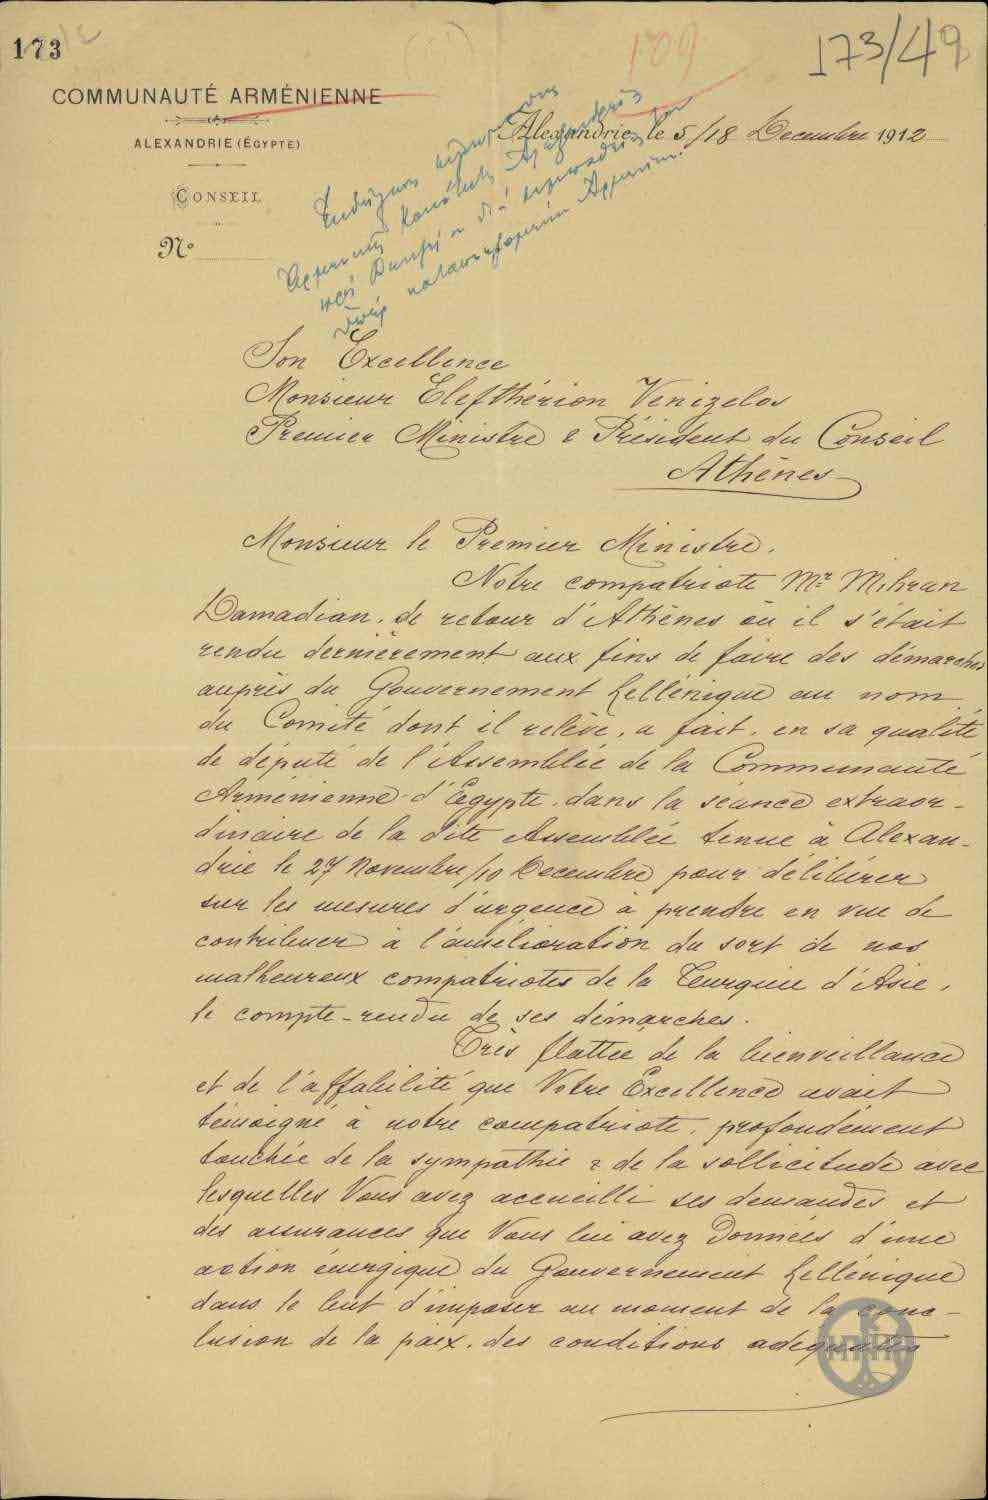 173
109
173/49
COMMUNAUTÉ ARMÉNIENNE
ALEXANDRIE (ÉGYPTE)
CONSEIL
Nº
Alexandrie, le 5/18 Decembre 1912
Son Excellence
Monsieur Elefthérion Venizelos
Premier Ministre & Président du Conseil
Athènes
Monsieur le Premier Ministre,
Notre compatriote Mr Mihran
Damadian, de retour d'Athènes où il s'était
rendu dernièrement aux fins de faire des démarches
auprès du Gouvernement hellénique au nom
du Comité dont il relève, a fait, en sa qualité
de député de l'Assemblée de la Communauté
Arménienne d'Egypte, dans la séance extraor-
dinaire de la dite Assemblée tenue à Alexan-
drie le 27 Novembre/10 Decembre pour délibérer
sur les mesures d'urgence à prendre en vue de
contribuer à l'amélioration du sort de nos
malheureux compatriotes de la Turquie d'Asie,
le compte-rendu de ses démarches.
Très flattée de la bienveillance
et de l'affabilité que Votre Excellence avait
témoigné à notre compatriote, profondément
touchée de la sympathie & de la sollicitude avec
lesquelles Vous avez accueilli ses demandes et
des assurances que Vous lui avez Données d'une
action énergique du Gouvernement hellénique
dans le but d'imposer au moment de la conc-
lusion de la paix, des conditions adéquates